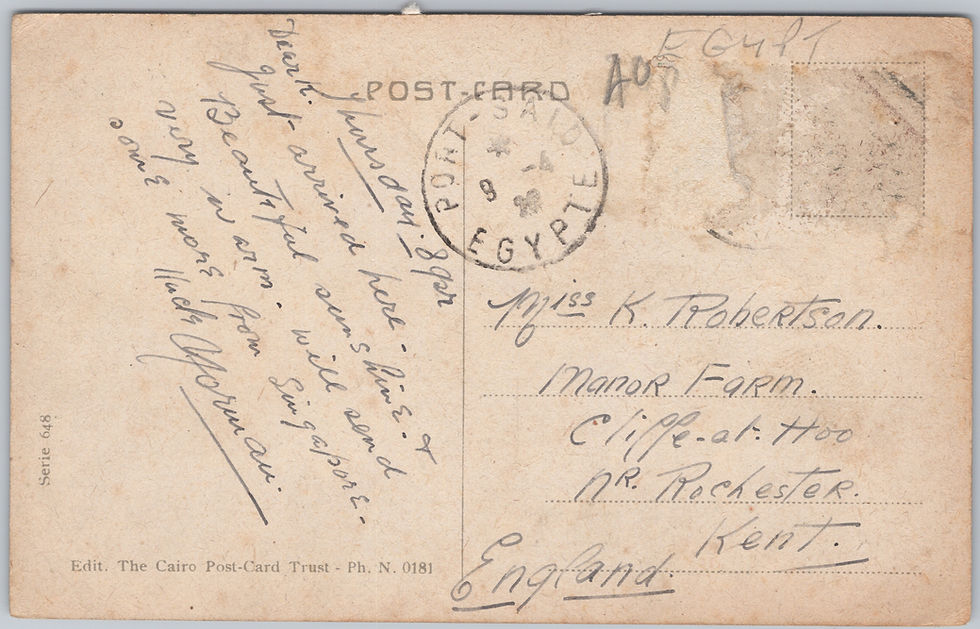 POST-CARD
EGYPT
PORT-SAID
8
EGYPTE
Thursday. 8 apr
Dear K.
Just arrived here-
Beautiful sunshine. &
very warm. will send
some more from Singapore-
Norman.
Miss K. Robertson.
Manor Farm.
Cliffe-at-Hoo
nr. Rochester.
Kent.
England.
Serie 648
Edit. The Cairo Post-Card Trust - Ph. N. 0181